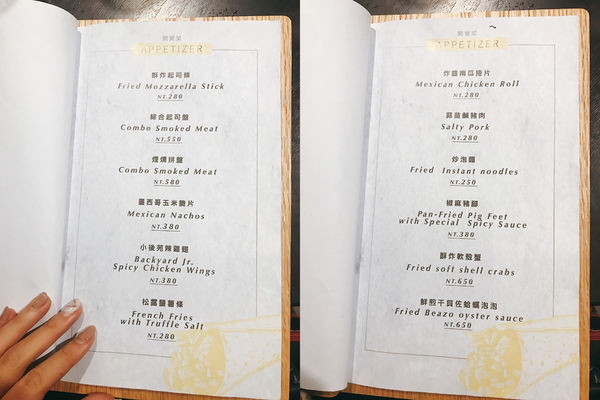 開胃菜
APPETIZER
酥炸起司條
Fried Mozzarella Stick
NT.280
綜合起司盤
Combo Smoked Meat
NT.550
煙燻拼盤
Combo Smoked Meat
NT.580
墨西哥玉米脆片
Mexican Nachos
NT.380
小後苑辣雞翅
Backyard Jr.
Spicy Chicken Wings
NT.380
松露鹽薯條
French Fries
with Truffle Salt
NT.280
開胃菜
APPETIZER
炸醬南瓜捲片
Mexican Chicken Roll
NT.280
蒜苗鹹豬肉
Salty Pork
NT.280
炒泡麵
Fried Instant noodles
NT.250
椒麻豬腳
Pan-Fried Pig Feet
with Special Spicy Sauce
NT.380
酥炸軟殼蟹
Fried soft shell crabs
NT.650
鮮煎干貝佐蛤蠣泡泡
Fried Beazo oyster sauce
NT.650